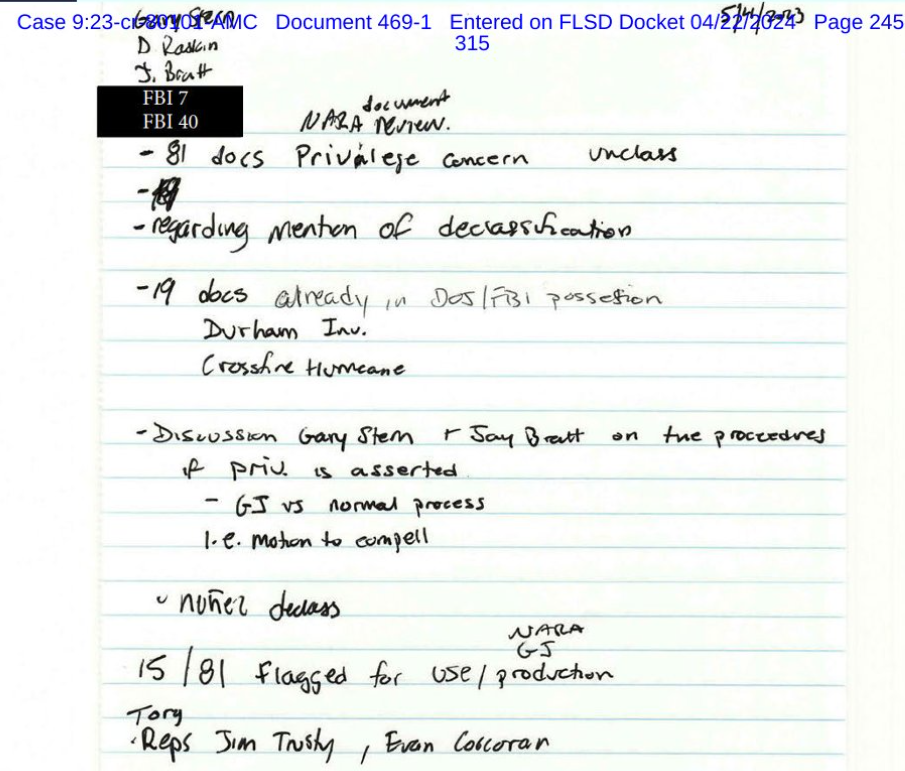 Case 9:23-cr-80101-AMC Document 469-1 Entered on FLSD Docket 04/22/2024 Page 245
315
Gary Stern
D Raskin
J. Bratt
FBI 7
FBI 40
NARA document review.
- 81 docs Privilege concern unclass
- regarding mention of declassification
- 19 docs already in DOJ/FBI possesion
Durham Inv.
Crossfire Hurricane
- Discussion Gary Stern + Jay Bratt on the procedures
if priv. is asserted
- GJ vs normal process
I.e. motion to compell
nuñez declass
NARA
GJ
15/81 flagged for use/production
Tory
Reps Jim Trusty, Evan Corcoran